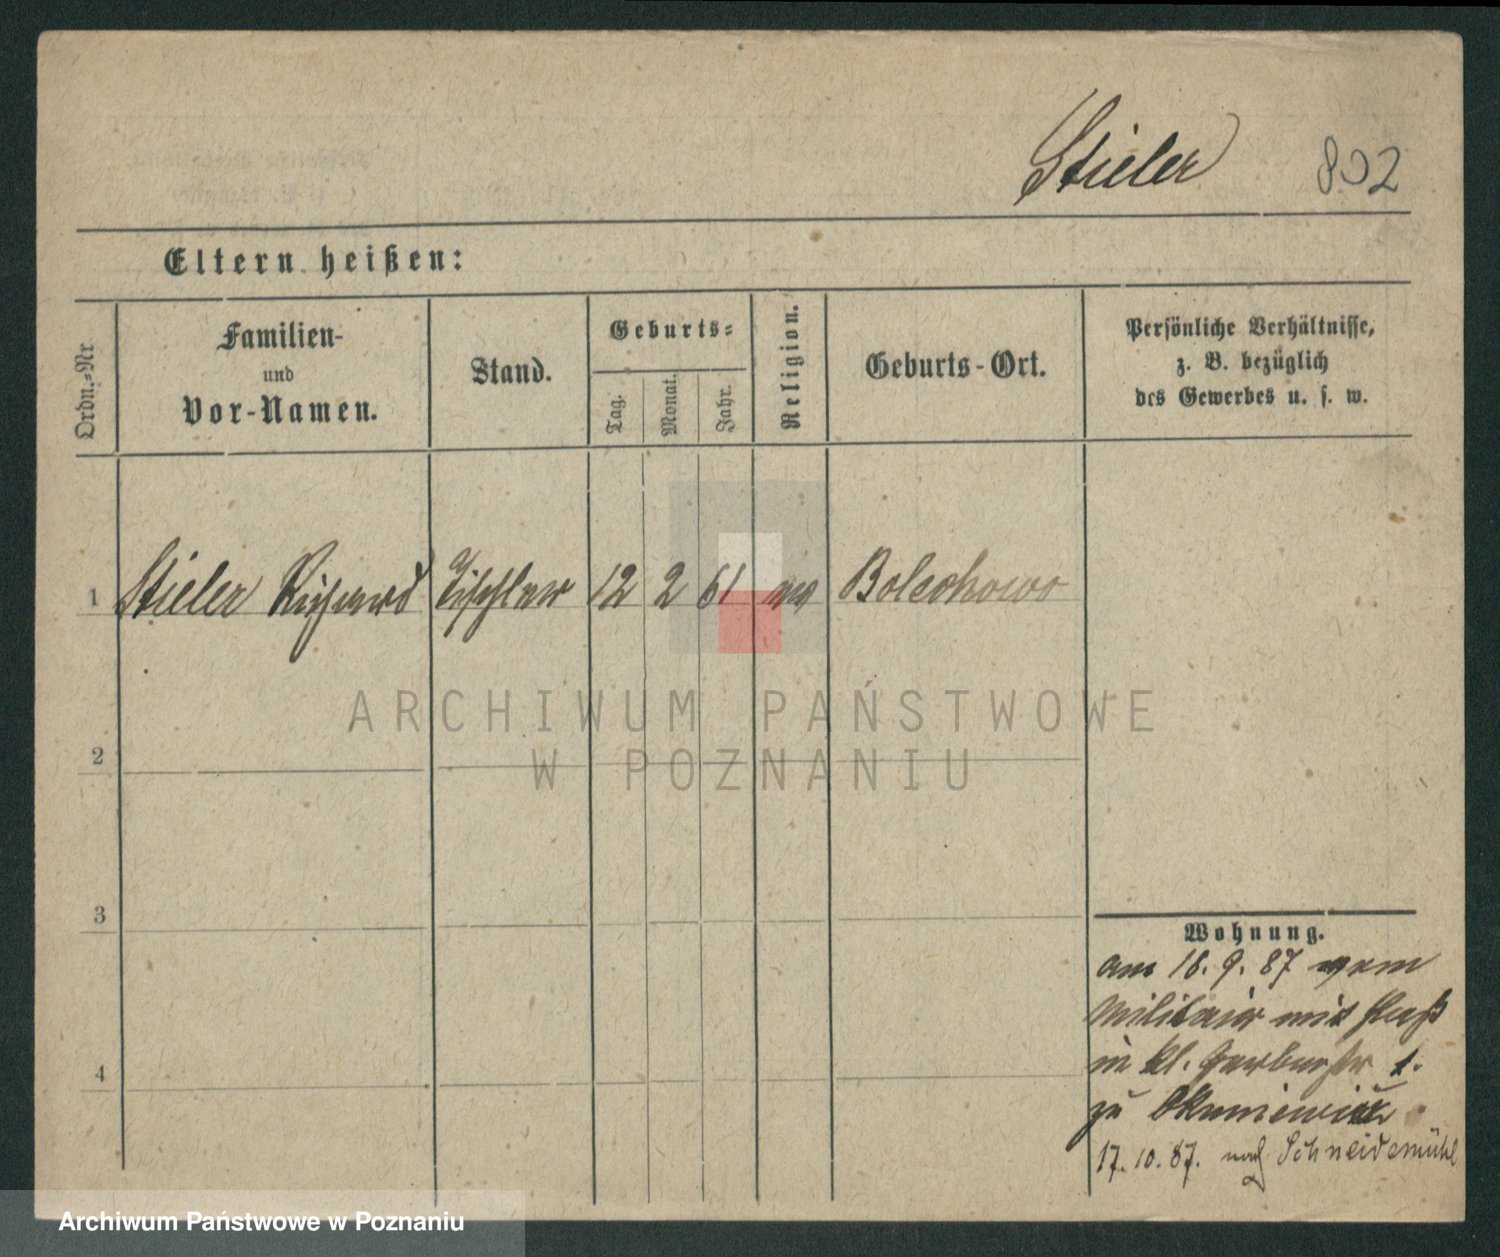 Stieler 802
Eltern heißen:
Ordn.-Nr
Familien-
und
Vor-Namen.
Stand.
Geburts-
Tag.
Monat.
Jahr.
Religion.
Geburts-Ort.
Persönliche Verhältnisse,
z. B. bezüglich
des Gewerbes u. s. w.
1 Stieler Richard Tischler 12 2 61 ev Bolechowo
ARCHIWUM PAŃSTWOWE
W POZNANIU
2
3
4
Wohnung.
am 18. 9. 87 vom
Militair mit
in kl. Gerberstr 1.
zu
17. 10. 87. nach Schneidemühl
Archiwum Państwowe w Poznaniu